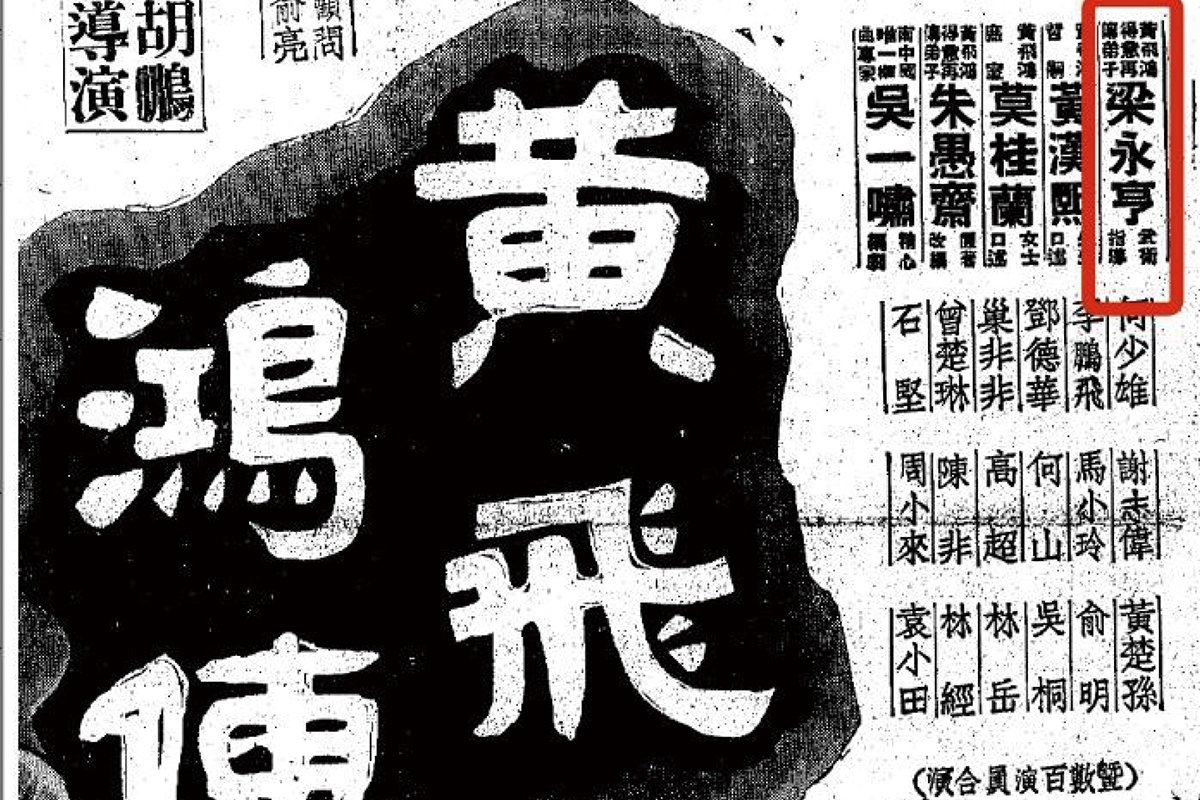 黃飛鴻
得意再
傳弟子
梁永亨
武術
指導
哲嗣
黃漢熙
口述
黃飛鴻
莫桂蘭
女士
口述
黃飛鴻
得意再
傳弟子
朱愚齋
改編
南中國
唯一
曲專家
吳一嘯
精心
編劇
何少雄
李鵬飛
鄧德華
巢非非
曾楚琳
石堅
謝志偉
馬小玲
何山
高超
陳非
周小來
黃楚孫
俞明
吳桐
林岳
林經
袁小田
(暨數百演員合演)
黃飛
鴻傳
顧問
俞亮
胡鵬
導演